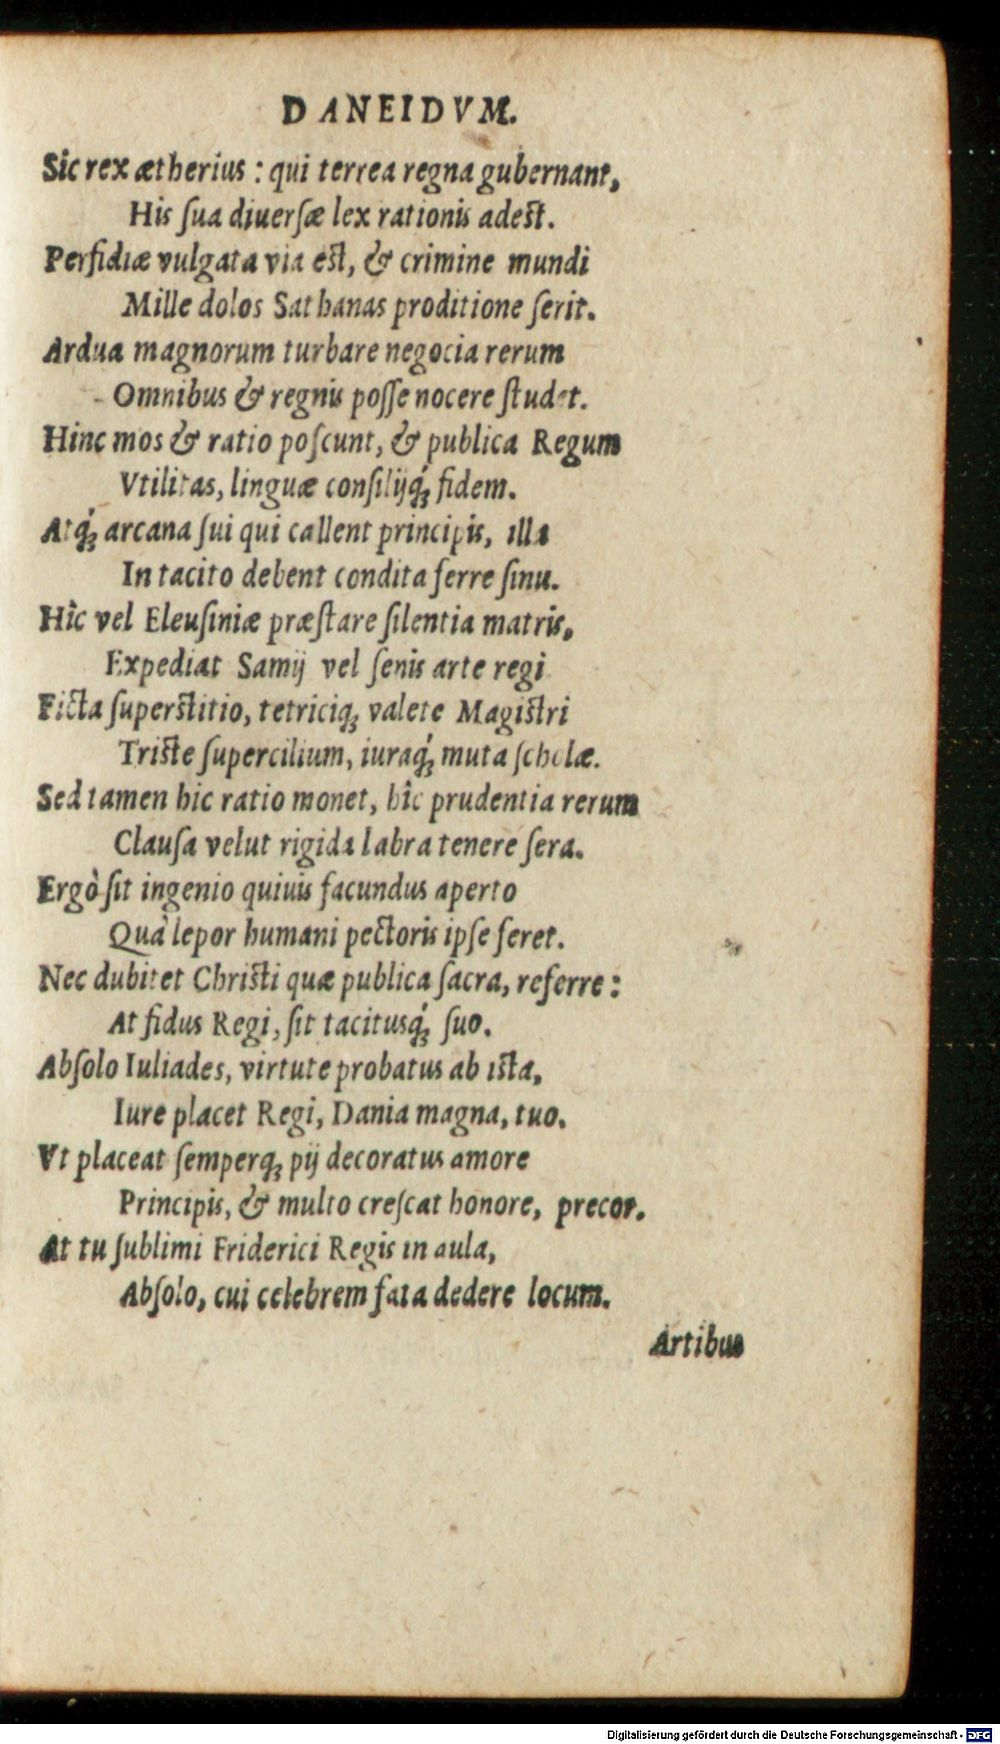 DANEIDVM.
Sic rex ætherius : qui terrea regna gubernant,
His ſua diuerſæ lex rationis adest.
Perfidiæ vulgata via est, & crimine mundi
Mille dolos Sathanas proditione ſerit.
Ardua magnorum turbare negocia rerum
Omnibus & regnis poſſe nocere ſtudet.
Hinc mos & ratio poſcunt, & publica Regum
Vtilitas, linguæ conſilijq́ꝫ fidem.
Atq́ꝫ arcana ſui qui callent principis, illa
In tacito debent condita ferre ſinu.
Hîc vel Eleuſiniæ præſtare ſilentia matris,
Expediat Samij vel ſenis arte regi
Ficta ſuperstitio, tetriciqꝫ valete Magistri
Triste ſupercilium, iuraq́ꝫ muta ſcholæ.
Sed tamen hic ratio monet, hîc prudentia rerum
Clauſa velut rigida labra tenere ſera.
Ergò ſit ingenio quiuis facundus aperto
Quà lepor humani pectoris ipſe feret.
Nec dubitet Christi quæ publica ſacra, referre :
At fidus Regi, ſit tacitusq́ꝫ ſuo.
Abſolo Iuliades, virtute probatus ab ista,
Iure placet Regi, Dania magna, tuo.
Vt placeat ſemperqꝫ pij decoratus amore
Principis, & multo creſcat honore, precor.
At tu ſublimi Friderici Regis in aula,
Abſolo, cui celebrem fata dedere locum.
Artibus
Digitalisierung gefördert durch die Deutsche Forschungsgemeinschaft - DFG